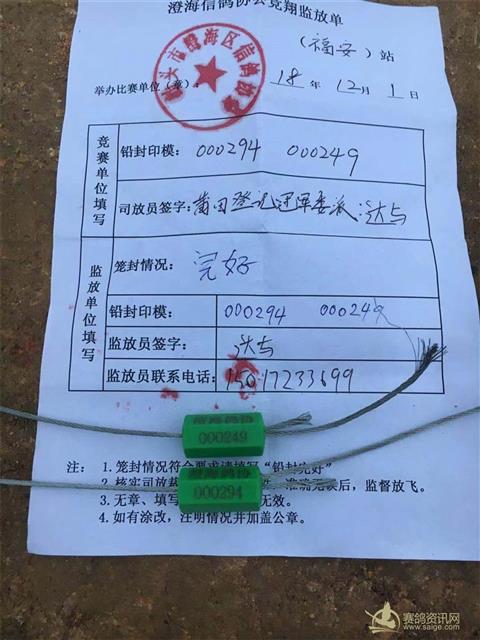 澄海信鸽协会竞翔监放单
（福安）站
举办比赛单位（章）： 18 年 12 月 1 日
汕头市澄海区信鸽协会
竞赛单位填写
铅封印模： 000294 000249
司放员签字：
监放单位填写
笼封情况： 完好
铅封印模： 000294 000249
监放员签字：
监放员联系电话： 15017233699
澄海鸽协
000249
澄海鸽协
000294
注： 1. 笼封情况符合要求请填写“铅封完好”
2. 核实司放 准确无误后，监督放飞。
3. 无章、填写 无效。
4. 如有涂改，注明情况并加盖公章。
赛鸽资讯网
www.saige.com